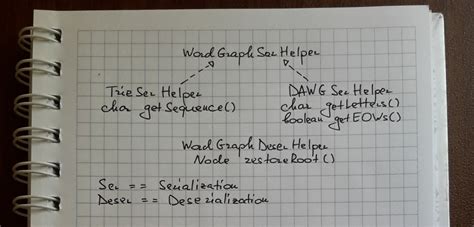 Word Graph Ser Helper
Trie Ser Helper
char getSequence()
DAWG Ser Helper
char getLetters()
boolean getEOWs()
Word Graph Deser Helper
Node restoreRoot()
Ser == Serialization
Deser == Deserialization